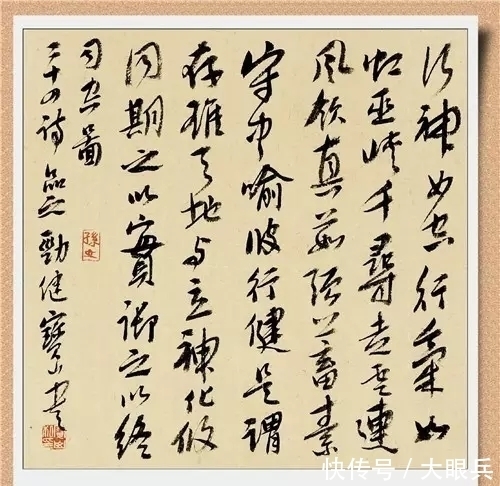 行神如空行氣如
虹巫峽千尋走雲連
風飲真茹强蓄素
守中喻彼行健是謂
存雄天地与立神化攸
同期之以實御之以終
司空圖
二十四詩品之勁健書
快传号/大眼兵